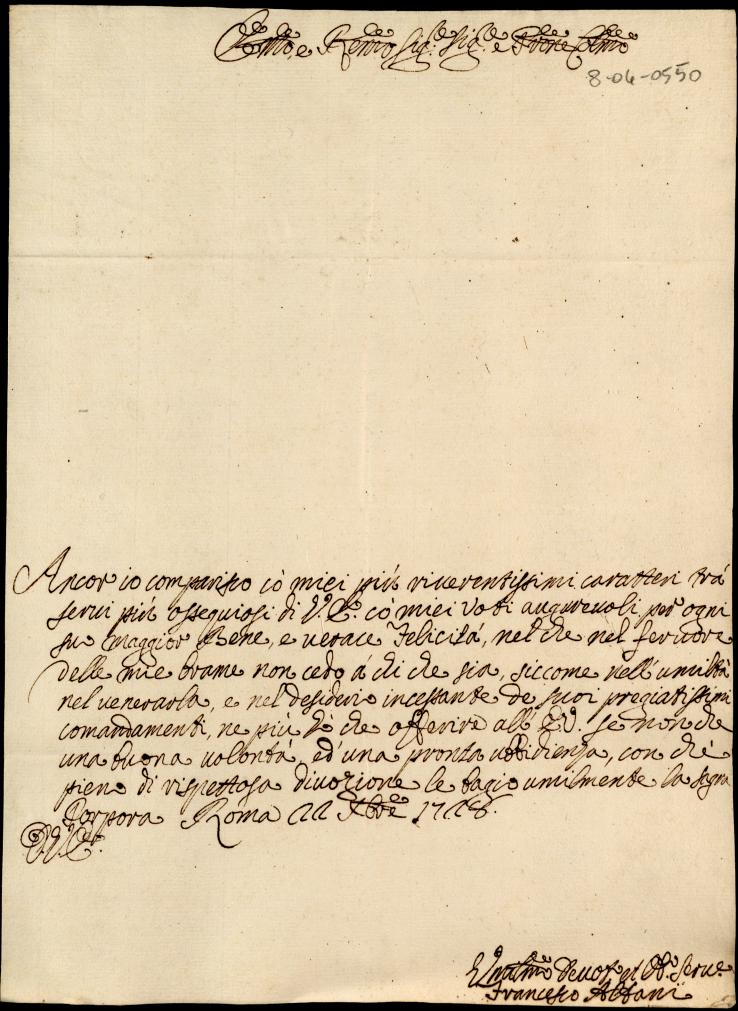 Emo, e Rmo Sig.r Sig.r e Prone Colmo
8-06-0550
Ancor io comparisco cò miei più riverentissimi caratteri trà
servi più ossequiosi di V.E. có miei voti augurevoli per ogni
su maggior Bene, e verace Felicità, nel che nel fervore
delle mie brame non cedo á chi che sia, siccome nell'umiltà
nel venerarla, e nel desiderio incessante de suoi pregiatissimi
comandamenti, ne più hò che offerire all'E.V. se non che
una buona volontà, ed'una pronta ubbidienza, con che
pieno di rispettosa divozione le bagio umilmente la sagra
Porpora Roma 22 Xbre 1728.
D.V.E.
Umilmo Devot. et Ob. Serve
Francesco Albani